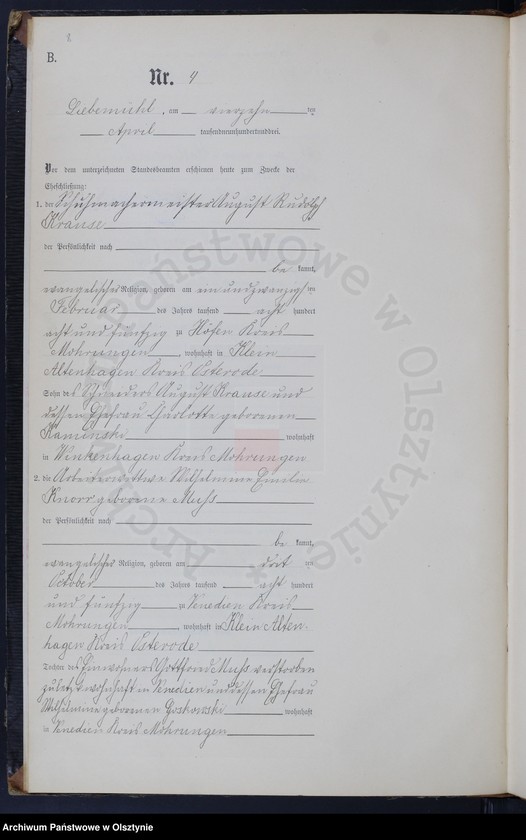 8
B.
Nr. 4
Liebemühl, am vierzehnten
April tausendneunhundertunddrei.
Vor dem unterzeichneten Standesbeamten erschienen heute zum Zwecke der
Eheschließung:
1. der Schuhmachermeister August Rudolph
Krause
der Persönlichkeit nach
bekannt,
evangelischer Religion, geboren am ein und zwanzigsten
Februar des Jahres tausend acht hundert
acht und fünfzig zu Höfen Kreis
Mohrungen, wohnhaft in Klein
Altenhagen Kreis Osterode
Sohn des Schneiders August Krause und
dessen Ehefrau Charlotte geborenen
Kaminski wohnhaft
in Winkenhagen Kreis Mohrungen
2. die Arbeiterwittwe Wilhelmine Emilie
Knorr geborene Muhs
der Persönlichkeit nach
bekannt,
evangelischer Religion, geboren am ten
October des Jahres tausend acht hundert
und fünfzig zu Venedien Kreis
Mohrungen, wohnhaft in Klein Alten-
hagen Kreis Osterode
Tochter des Einwohners Gottfried Muhs verstorben
zuletzt wohnhaft in Venedien und dessen Ehefrau
Wilhelmine geborenen wohnhaft
in Venedien Kreis Mohrungen
Archiwum Państwowe w Olsztynie
Archiwum Państwowe w Olsztynie